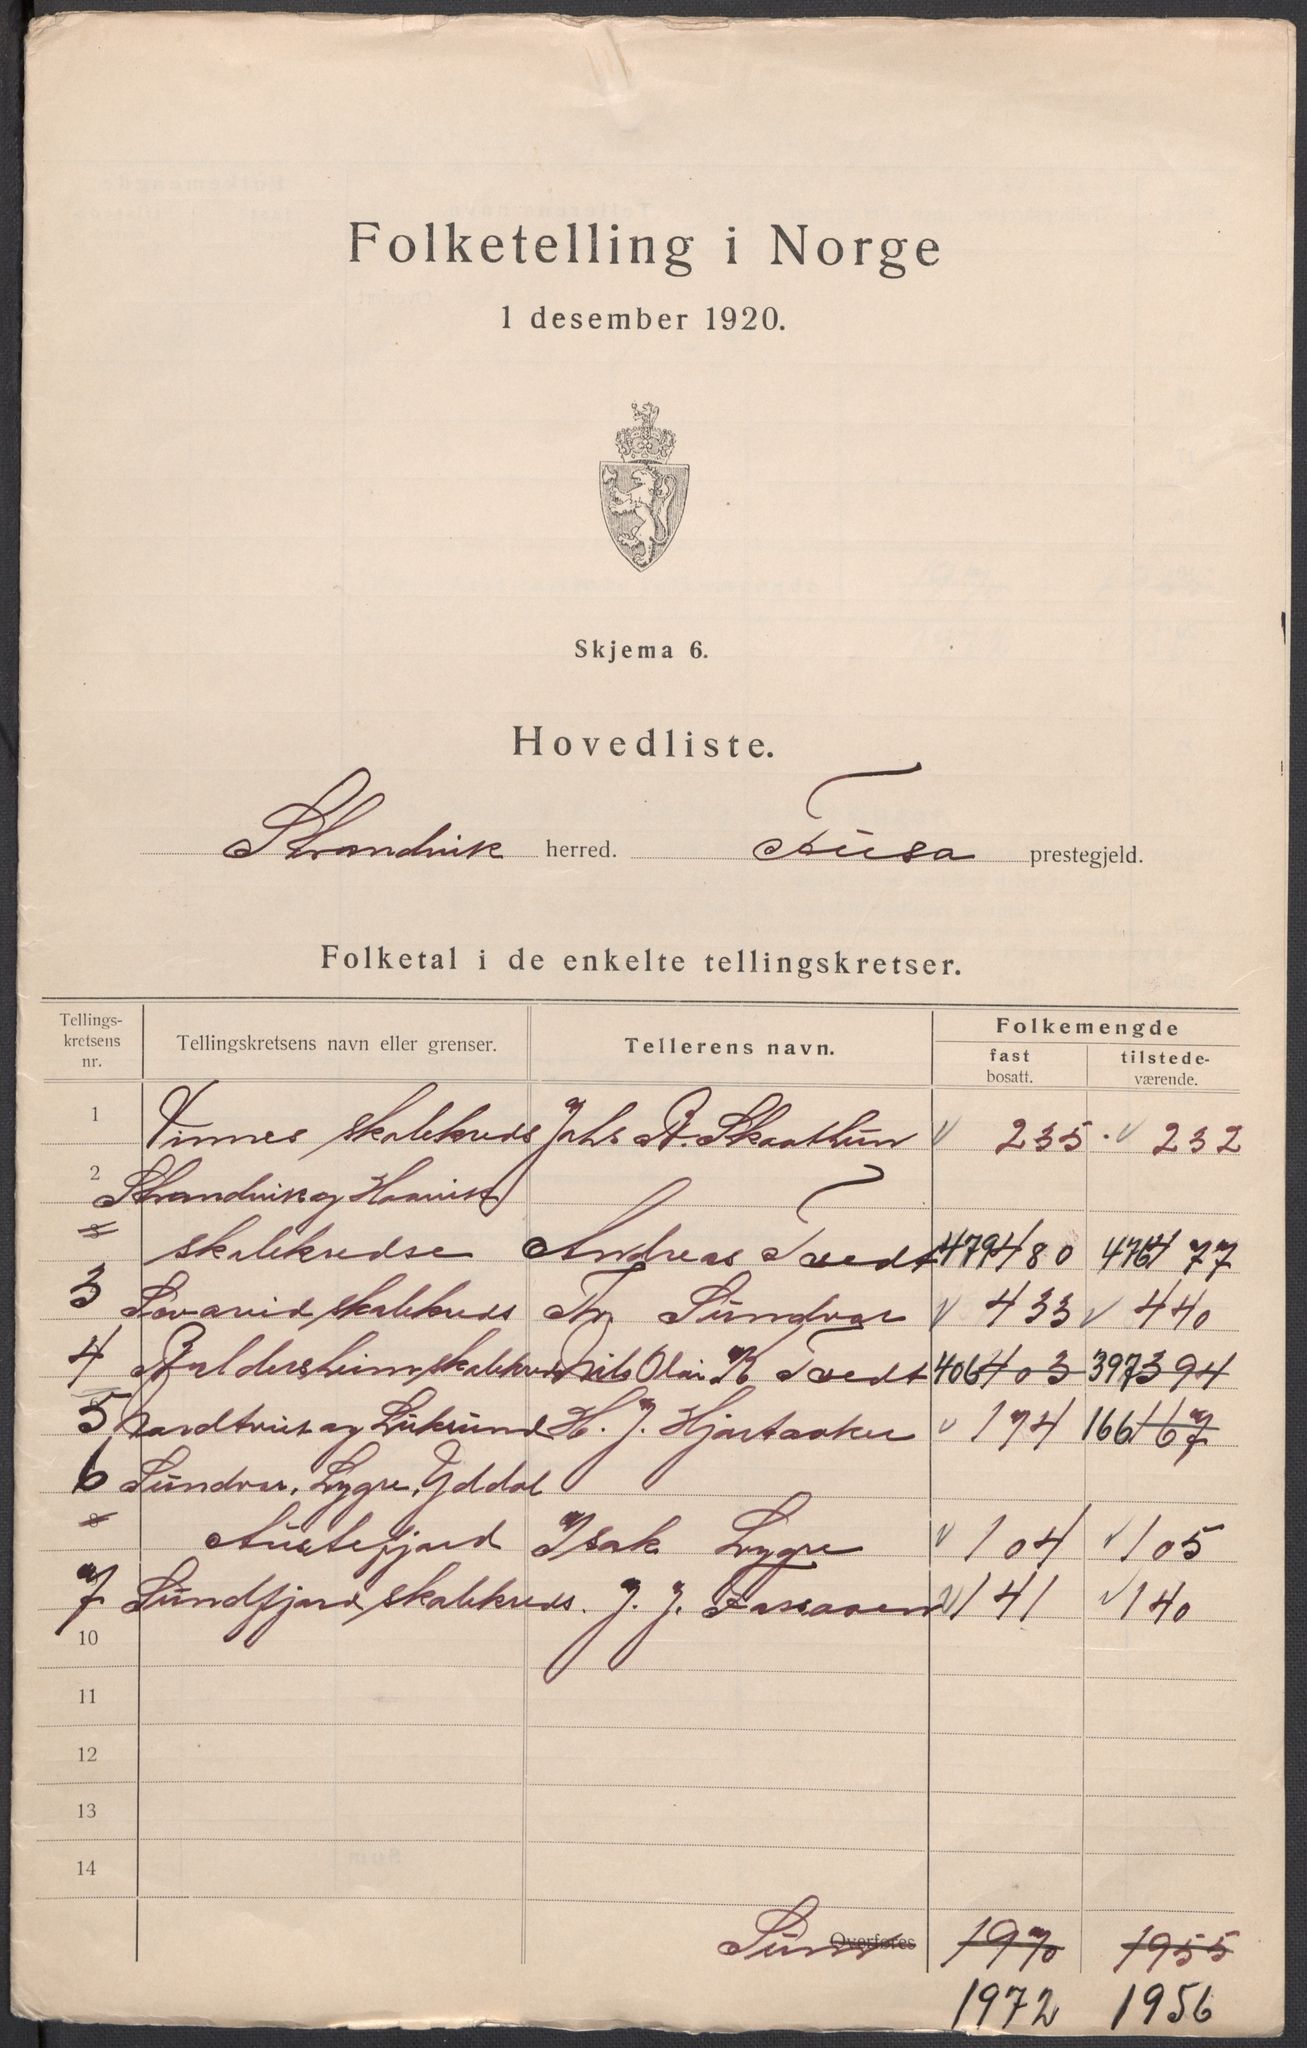 Folketelling i Norge
1 desember 1920.
Skjema 6.
Hovedliste.
Strandvik herred. Fusa prestegjeld.
Folketal i de enkelte tellingskretser.
Tellings-kretsens nr. Tellingskretsens navn eller grenser. Tellerens navn. Folkemengde
fast bosatt. tilstede-værende.
1 Vinnes skolekreds Johs B. Skaathun 235 232
2 Strandvik og Haavik
skolekredse Andreas Tvedt 479 480 476 477
3 Sævareid skolekreds Tr. Sundvor 433 440
4 Baldersheim skolekreds Nils Olai K Tvedt 406 403 397 394
5 Nordtveit og Luksund H. J. Hjartaaker 174 166 167
6 Sundvor, Lygre, Yddal
Austefjord Isak Lygre 104 105
7 Sundfjord skolekreds. J. J. 141 140
10
11
12
13
14
Sum Overføres 1970 1955
1972 1956